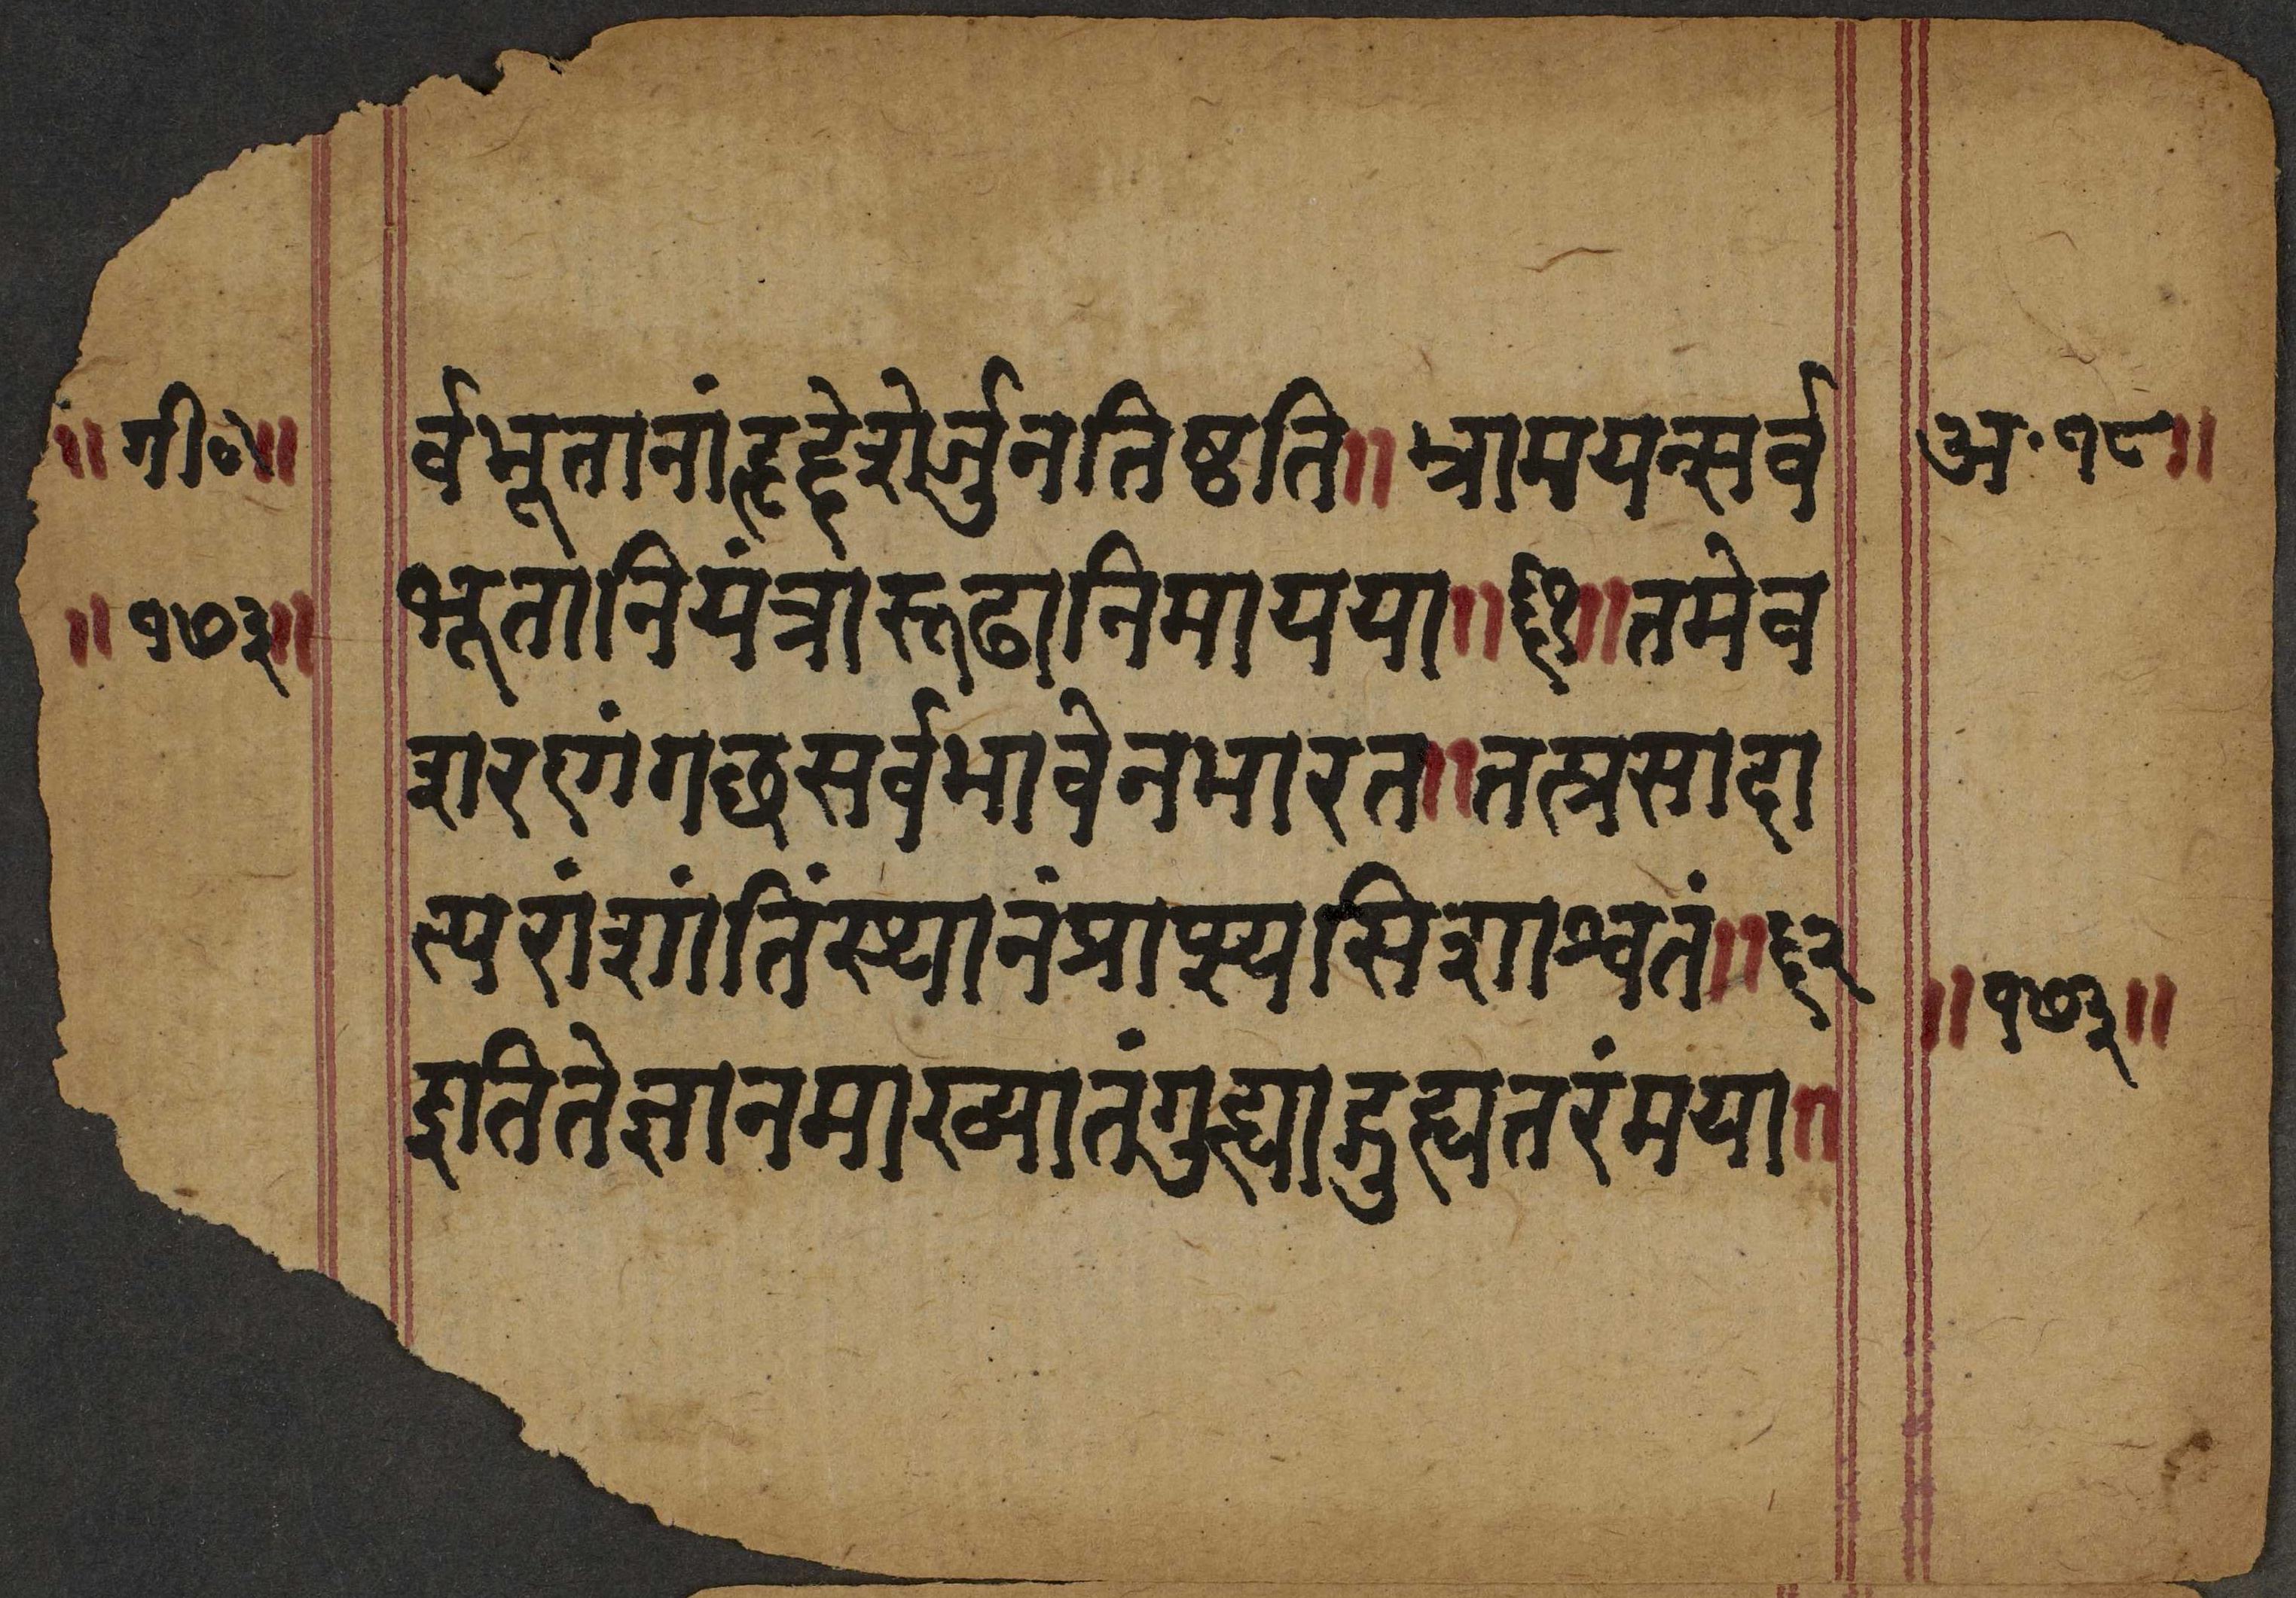 ॥गी०॥
॥१७३॥
र्वभूतानांहृद्देशेर्जुनतिष्ठति॥भ्रामयन्सर्व
भूतानियंत्रारूढानिमायया॥६१॥तमेव
शरणंगछसर्वभावेनभारत॥तत्प्रसादा
त्परांशांतिंस्थानंप्राप्स्यसिशाश्वतं॥६२
इतितेज्ञानमाख्यातंगुह्याद्गुह्यतरंमया॥
अ॰१८॥
॥१७३॥